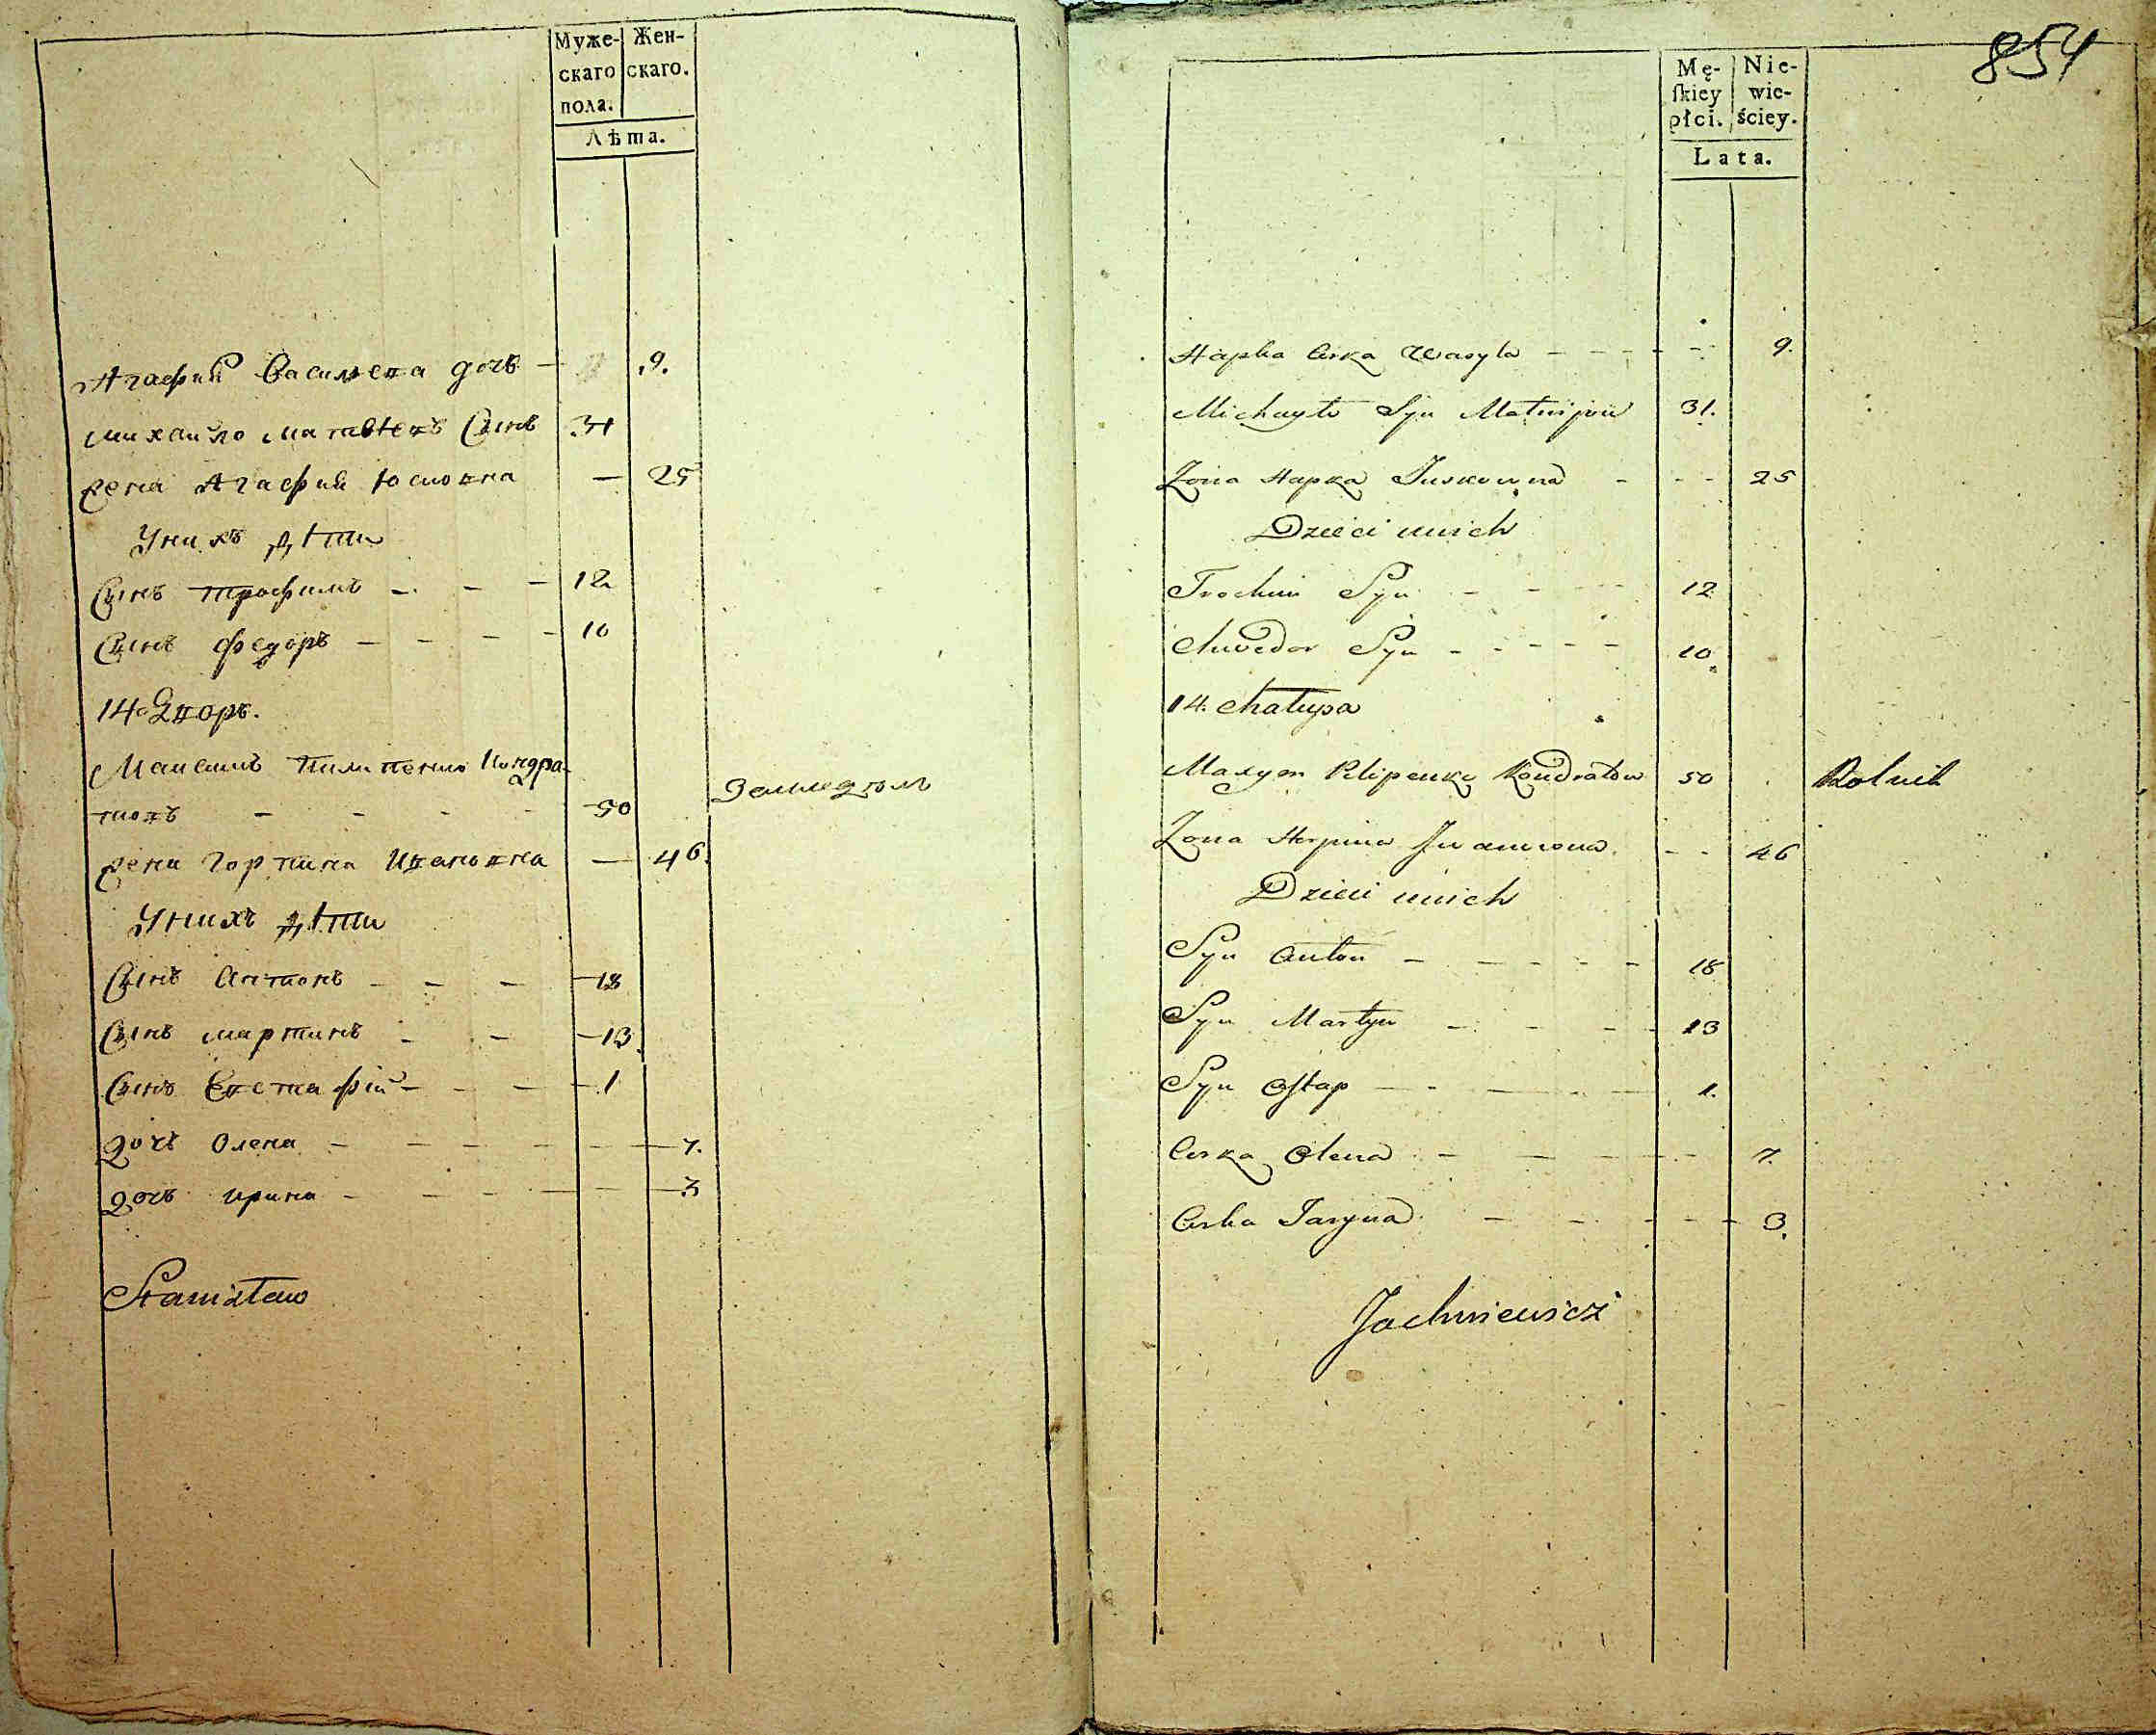 Муже- Жен-
скаго скаго.
пола.
Лѣта.
Агафия Васильева дочь — .9.
Михайло Матвѣевъ Сынъ 31
Жена Агафия Юсковна — 25
Унихъ дѣти
Сынъ Трофимъ - - - 12
Сынъ Федоръ - - - - 10
14. Дворъ.
Максимъ Пилипенко Кондра-
товъ - - - - 50 Земледѣл
Жена Горпина Ивановна — 46.
Унихъ дѣти
Сынъ Антонъ - - - 18
Сынъ Мартинъ - - 13.
Сынъ Евстафій - - - 1
Дочъ Олена - - - - - 7.
Дочъ Ирина - - - - - 3
Stanisław
854
Mę- Nie-
ſkiey wie-
płci. ściey.
Lata.
Hapka Curka Wasyla - - - - - 9.
Michayło Syn Matwijow 31.
Zona Hapka Juskowna - - - 25
Dzieci unich
Trochim Syn - - - - 12
Chwedor Syn - - - - - 10.
14. Chałupa
Maxym Pilipenko Kondratow 50 Rolnik
Zona Horpina Iwanowna - - 46
Dzieci unich
Syn Anton - - - - - 18
Syn Martyn - - - - - 13
Syn Oſtap - - - - - 1.
Curka Olena - - - - - 7.
Curka Jaryna - - - - - 3.
Jachniewicz